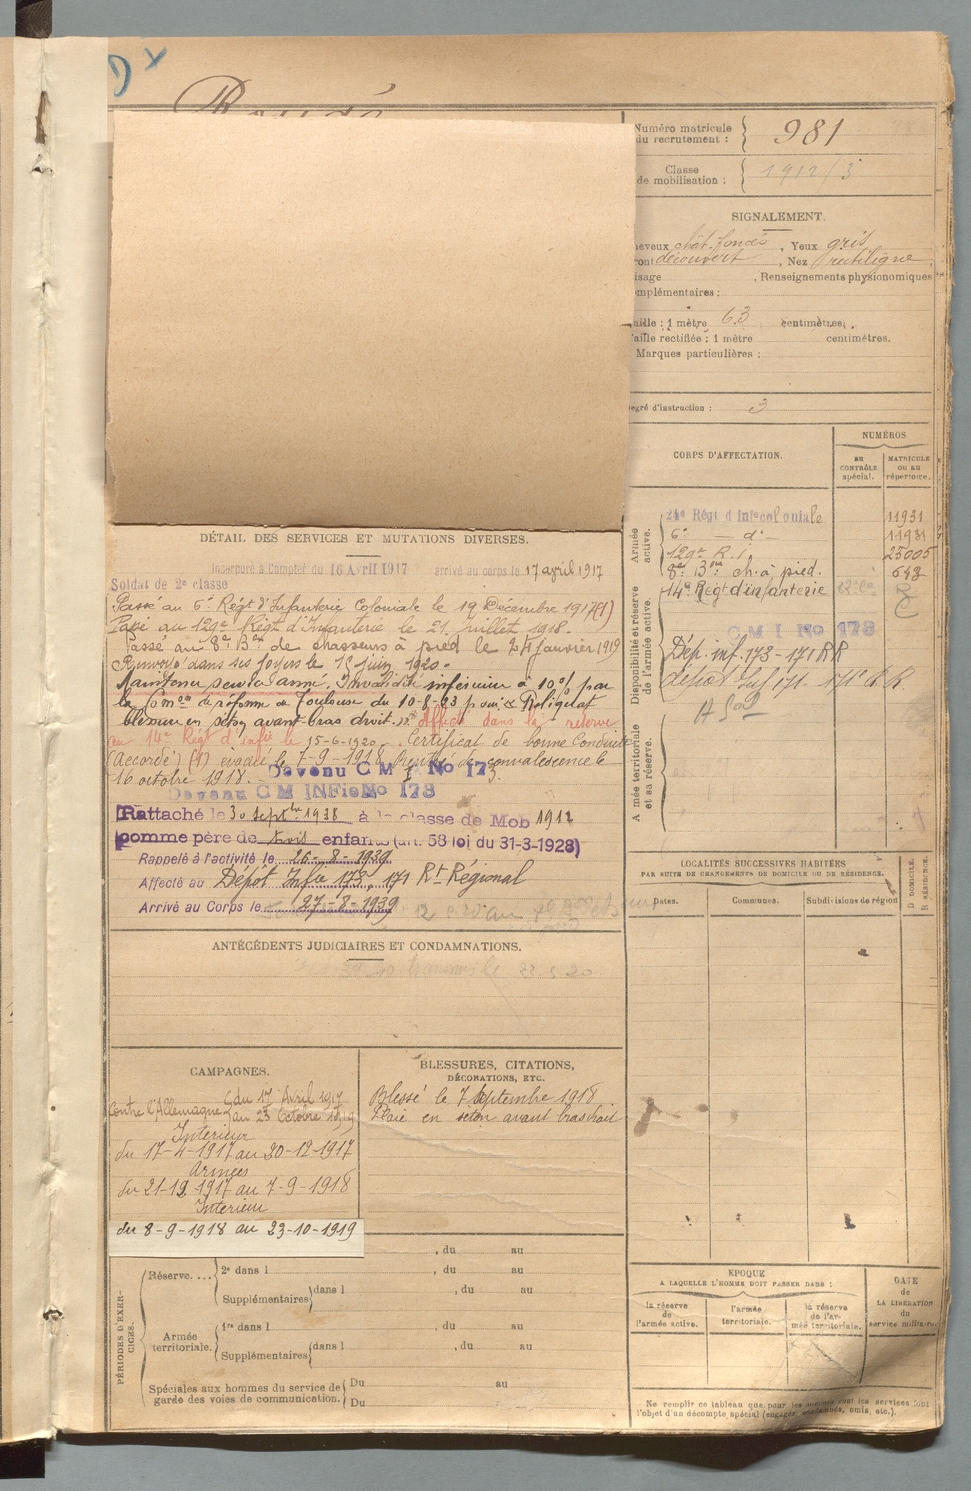 D x
Numéro matricule
du recrutement : 981
Classe
de mobilisation : 1912/3
SIGNALEMENT.
heveux chât. foncés , Yeux gris
ront découvert , Nez rectiligne
isage , Renseignements physionomiques
omplémentaires :
aille : 1 mètre 63 centimètres.
aille rectifiée : 1 mètre centimètres.
Marques particulières :
egré d'instruction : 3
CORPS D'AFFECTATION.
NUMÉROS
au
CONTRÔLE
spécial.
MATRICULE
ou au
répertoire.
Armée
active.
24e Régt d'Infie coloniale 11931
6e — d° — 11931
129e R. I. 25005
8e Bon ch. à pied. 642
Disponibilité et réserve
de l'armée active.
14e Régt d'infanterie
C M I No 178
Dép. inf. 173 - 171 RR
dépot Inf 171 - 171e R.R.
Armée territoriale
et sa réserve.
DÉTAIL DES SERVICES ET MUTATIONS DIVERSES.
Incorporé à Compter du 16 Avril 1917 arrivé au corps le 17 avril 1917
Soldat de 2e classe
Passé au 6e Régt d'Infanterie Coloniale le 19 Décembre 1917 (1)
Passé au 129e Régt d'Infanterie le 21 Juillet 1918.
Passé au 8e Bon de chasseurs à pied le 24 Janvier 1919
Renvoyé dans ses foyers le 15 juin 1920.
Maintenu service armé, Invalidité inférieure à 10% par
la Comon de réforme de Toulouse du 10-8-23 pour "Reliquat
blessure en séton avant-bras droit." Affecté dans la réserve
au 14e Régt d'infie le 15-6-1920. Certificat de bonne Conduite
(Accordé) (1) évacué le 7-9-1918 de convalescence le
16 octobre 1918. Devenu C M I No 173.
Devenu C M INFie No 178
Rattaché le 30 septbre 1938 à la classe de Mob 1912
comme père de trois enfants (art. 58 loi du 31-3-1928)
Rappelé à l'activité le 26-8-1939
Affecté au Dépôt Infie 173, 171 Rt Régional
Arrivé au Corps le 27-8-1939
ANTÉCÉDENTS JUDICIAIRES ET CONDAMNATIONS.
CAMPAGNES.
Contre l'Allemagne du 17 Avril 1917
au 23 Octobre 1919
Intérieur
du 17-4-1917 au 20-12-1917
Armées
du 21-12-1917 au 7-9-1918
Intérieur
du 8-9-1918 au 23-10-1919
BLESSURES, CITATIONS,
DÉCORATIONS, ETC.
Blessé le 7 Septembre 1918
Plaie en séton avant bras droit
PÉRIODES D'EXER-
CICES.
, du au
Réserve.... 2e dans l , du au
Supplémentaires dans l , du au
Armée
territoriale. 1re dans l , du au
Supplémentaires dans l , du au
Spéciales aux hommes du service de
garde des voies de communication. Du au
Du
LOCALITÉS SUCCESSIVES HABITÉES
PAR SUITE DE CHANGEMENTS DE DOMICILE OU DE RÉSIDENCE.
Dates. Communes. Subdivisions de région
D DOMICILE.
R RÉSIDENCE.
EPOQUE
A LAQUELLE L'HOMME DOIT PASSER DANS :
la réserve
de
l'armée active.
l'armée
territoriale.
la réserve
de l'ar-
mée territoriale.
DATE
de
LA LIBÉRATION
du
service militaire.
Ne remplir ce tableau que pour les hommes dont les services font
l'objet d'un décompte spécial (engagés, condamnés, omis, etc.).